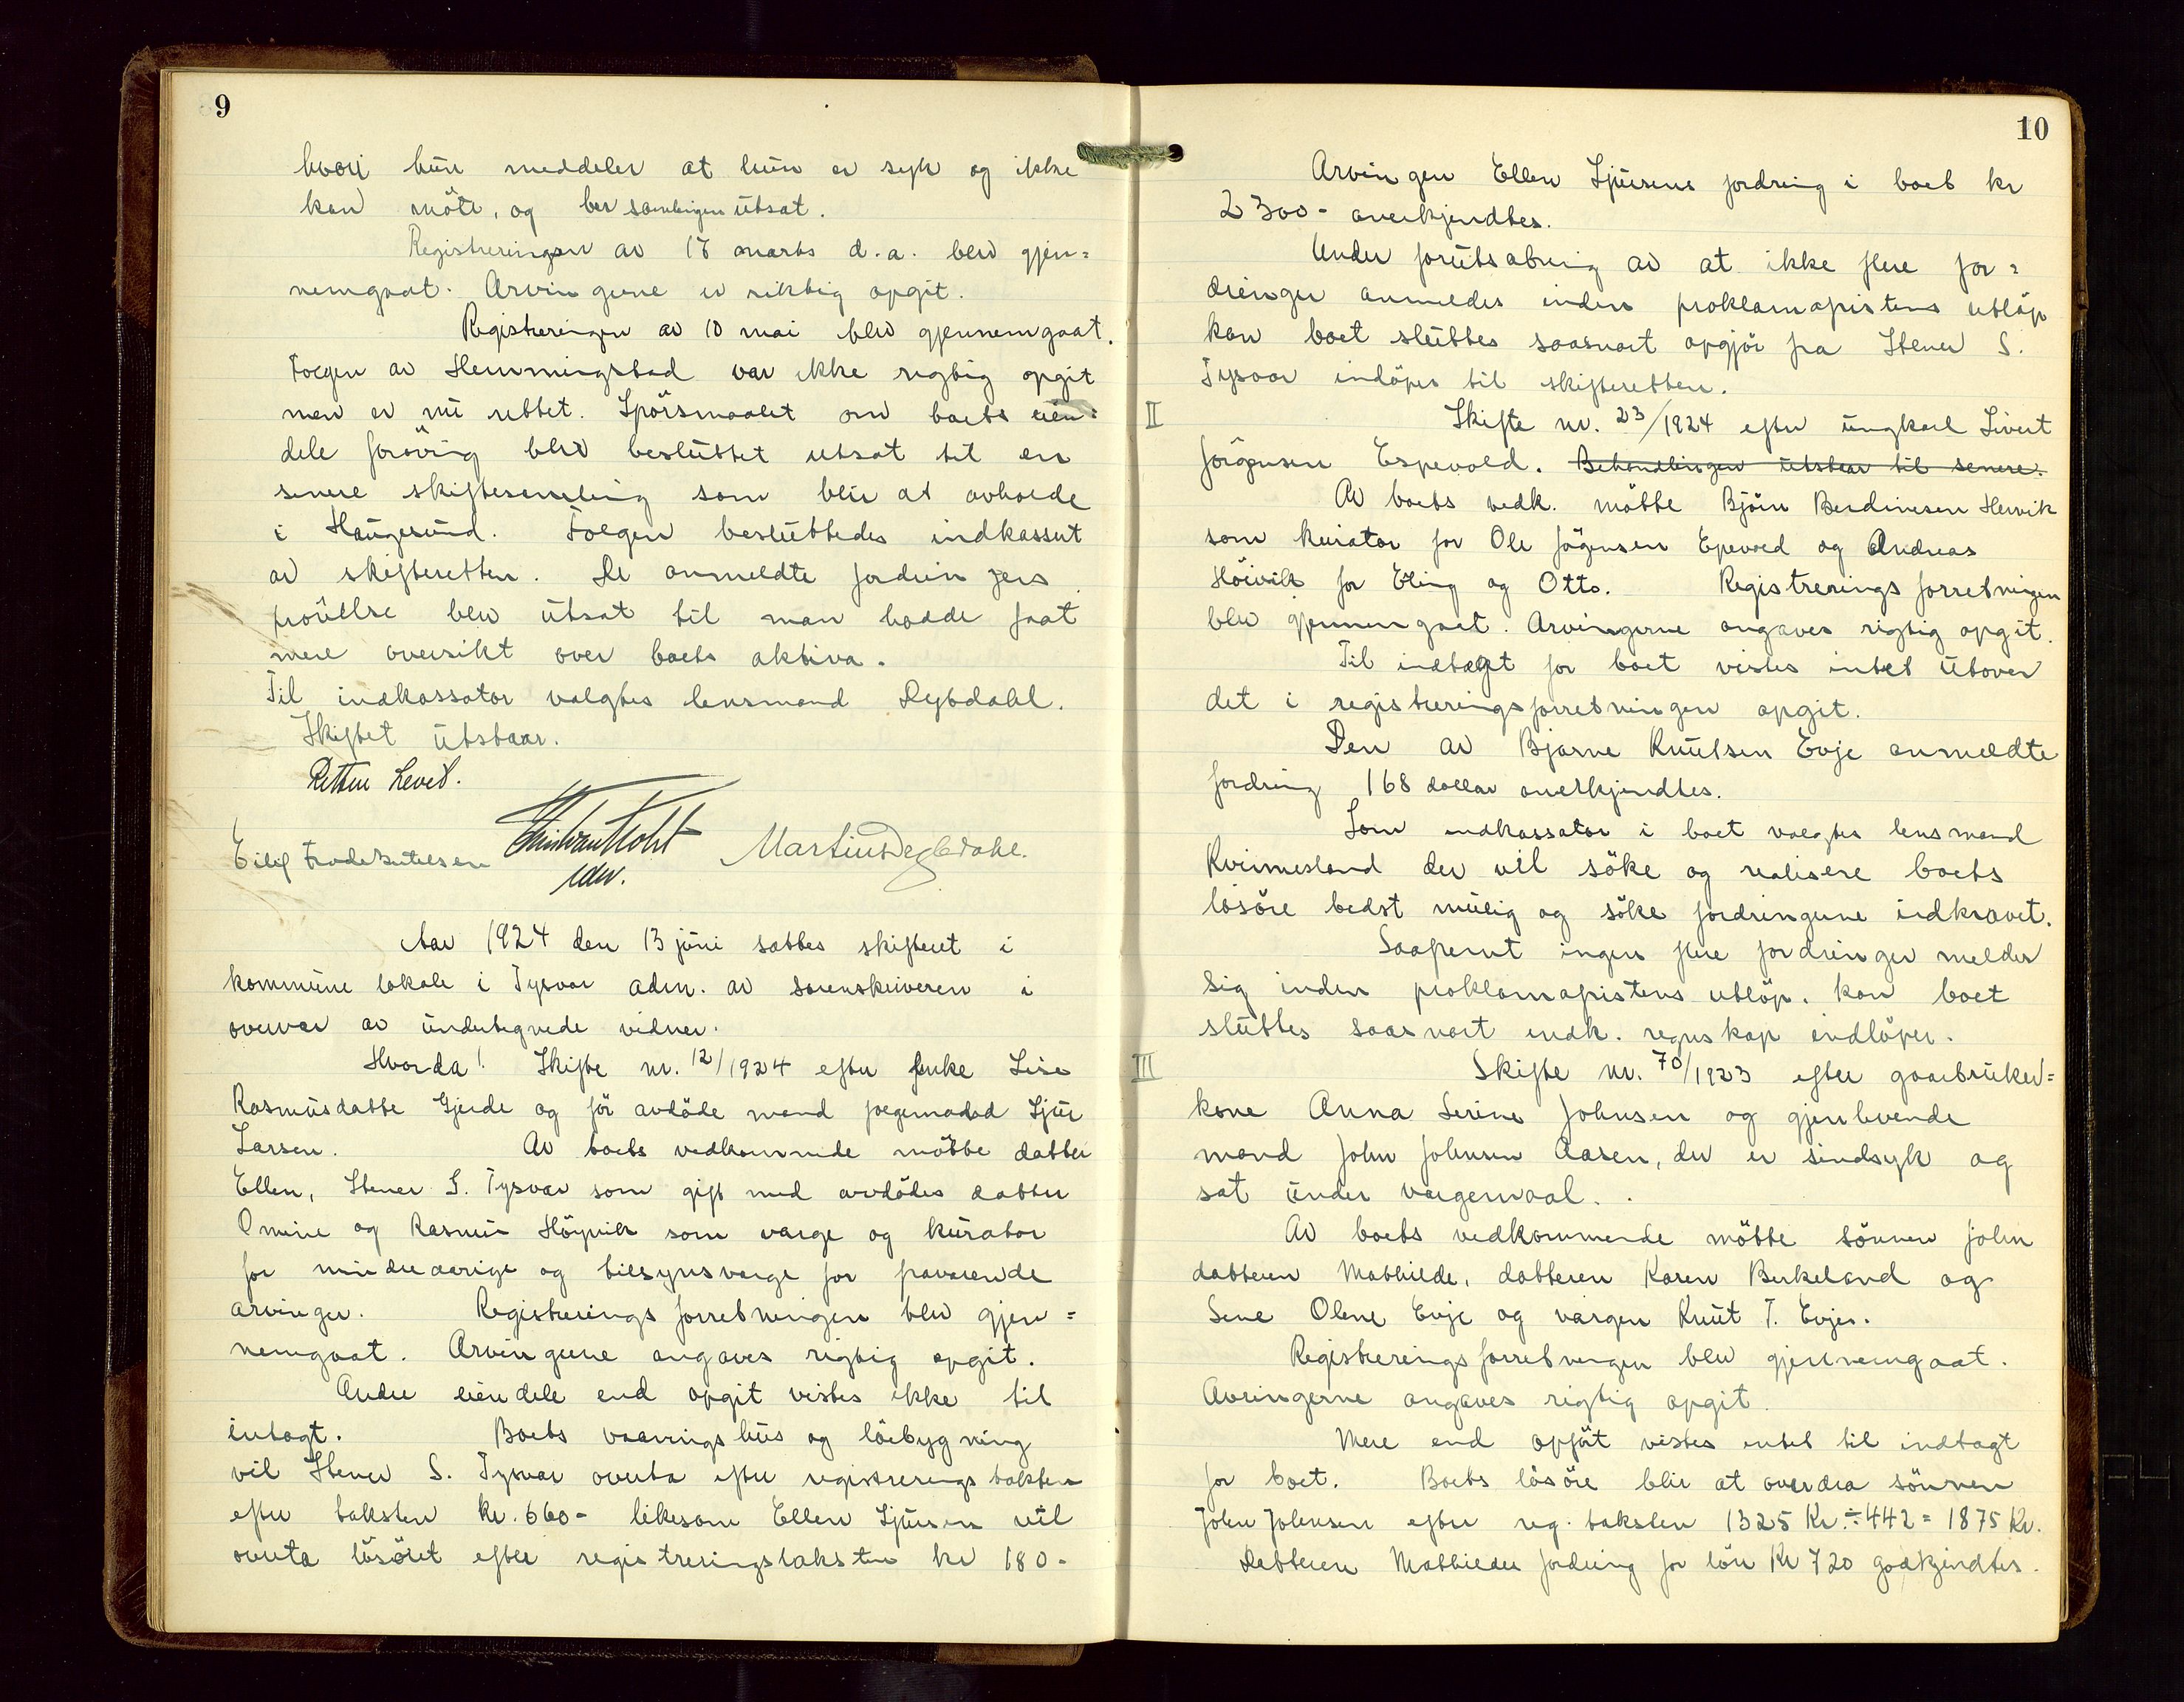 9
hvori hun meddeler at hun er syk og ikke
kan möte, og ber samlingen utsat.
Registreringen av 18 marts d.a. blev gjen=
nemgaat. Arvingerne er riktig opgit.
Registreringen av 10 mai blev gjennemgaat.
Foegen av Hemmingstad var ikke rigtig opgit
men er nu rettet. Spörsmaalet om boets eien=
dele forövrig blev besluttet utsat til en
senere skiftesamling som blir at avholde
i Haugesund. Foegen besluttedes indkassert
av skifteretten. De anmeldte fordringers
prövelse blev utsat til man hadde faat
mere oversikt over boets aktiva.
Til indkassator valgtes lensmand Dybdahl.
Skiftet utstaar.
Retten hevet.
Eilif Frode Knutsen Martin Dybdahl.
edv.
Aar 1924 den 13 juni sattes skifteret i
kommune lokale i Tysvar adm. av sorenskriveren i
overvær av undertegnede vidner.
Hvorda! Skifte nr. 12/1924 efter enke Lise
Rasmusdatte Gjerde og för avdöde mand Sjur
Larsen. Av boets vedkommende mötte datter
Ellen, Stener S. Tysvar som gift med avdödes datter
Omine og Rasmus Höyvik som værge og kurator
for mindreaarige og tilsynsverge for fraværende
arvinger. Registrerings forretningen blev gjen=
nemgaat. Arvingerne angaves rigtig opgit.
Andre eiendele end opgit vistes ikke til
indtagt. Boets vaaningshus og löebygning
vil Stener S. Tysvar overta efter registrerings taksten
efter taksten kr. 660- likesom Ellen Sjursen vil
overta lösöret efter registreringstaksten kr 180-
10
Arvingen Ellen Sjursens fordring i boet kr
2300- anerkjendtes.
Under forutsætning av at ikke flere for=
dringer anmeldes inden proklamafristens utlöp
kan boet sluttes saasnart opgjör fra Stener S.
Tysvar indöper til skifteretten.
II
Skifte nr. 23/1924 efter ungkarl Sivert
Jörgensen Espevold. Behandlingen utstaar til senere.
Av boets vedk. mötte Björn Berdinesen Hervik
som kurator for Ole Jörgensen Epevoed og Andreas
Höievik for Eling og Otto. Registrerings forretningen
blev gjennemgaat. Arvingerne angaves rigtig opgit.
Til indtægt for boet vistes intet utover
det i registreringsforretningen opgit.
Den av Bjarne Knutsen Evje anmeldte
fordring 168 dollar anerkjendtes.
Som indkassator i boet valgtes lensmand
Kvinnesland der vil söke og realisere boets
lösöre bedst mulig og söke fordringerne indkrævet.
Saafremt ingen flere fordringer melder
sig inden proklamafristens utlöp, kan boet
sluttes saasnart indk. regnskap indlöper.
III
Skifte nr. 70/1923 efter gaardbruker=
kone Anna Serine Johnsen og gjenlevende
mand John Johnsen Aasen, der er sindsyk og
sat under vægemaal.
Av boets vedkommende mötte sönnen John
datteren Mathilde, datteren Karen Birkeland og
Sene Olene Evje og værgen Knut T. Evjes.
Registreringsforretningen blev gjennemgaat.
Arvingerne angaves rigtig opgit.
Mere end opfört vistes intet til indtagt
for boet. Boets lösöre blir at overdra sönnen
John Johnsen efter reg. taksten 1325 Kr. ÷ 442 = 1875 Kr.
Datteren Mathildes fordring for lön Kr 720 godkjendtes.